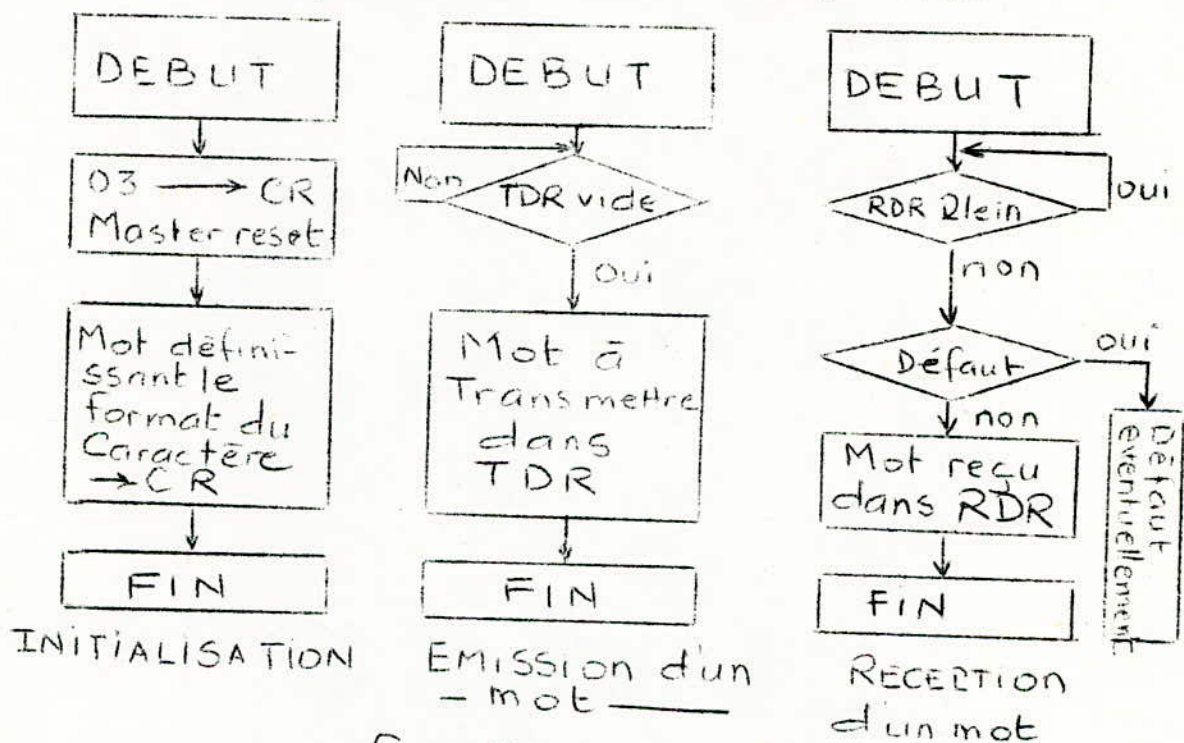 DEBUT
03 → CR
Master reset
Mot défini-
ssant le
format du
Caractère
→ CR
FIN
INITIALISATION
DEBUT
Non
TDR vide
Oui
Mot à
Transmettre
dans
TDR
FIN
EMISSION d'un
- mot
DEBUT
RDR Plein
oui
non
Défaut
oui
non
Mot reçu
dans RDR
Défaut
éventuellement
FIN
RECEPTION
d'un mot